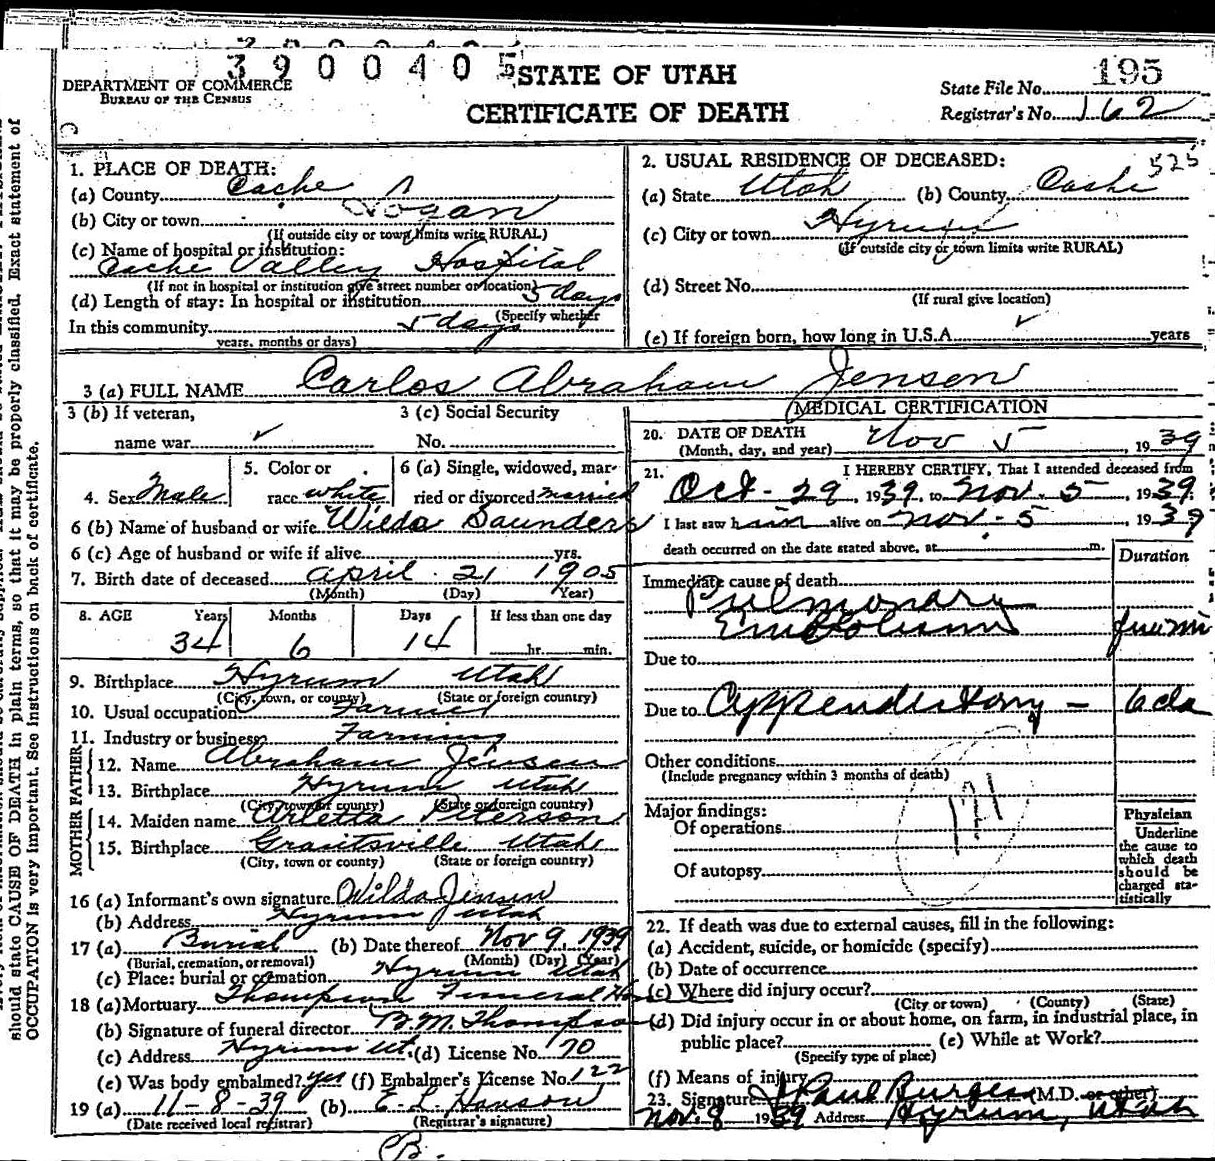 3900405
DEPARTMENT OF COMMERCE
BUREAU OF THE CENSUS
STATE OF UTAH
CERTIFICATE OF DEATH
State File No. 195
Registrar's No. 162
1. PLACE OF DEATH:
(a) County Cache
(b) City or town Logan
(If outside city or town limits write RURAL)
(c) Name of hospital or institution:
Cache Valley Hospital
(If not in hospital or institution give street number or location)
(d) Length of stay: In hospital or institution 5 days
(Specify whether
In this community 5 days
years, months or days)
2. USUAL RESIDENCE OF DECEASED: 525
(a) State Utah (b) County Cache
(c) City or town Hyrum
(If outside city or town limits write RURAL)
(d) Street No.
(If rural give location)
(e) If foreign born, how long in U.S.A. ✓ years
3 (a) FULL NAME Carlos Abraham Jensen
3 (b) If veteran,
name war ✓
3 (c) Social Security
No.
4. Sex Male
5. Color or
race white
6 (a) Single, widowed, mar-
ried or divorced married
6 (b) Name of husband or wife Wilda Saunders
6 (c) Age of husband or wife if alive yrs.
7. Birth date of deceased April 21 1905
(Month) (Day) (Year)
8. AGE Years Months Days If less than one day
34 6 14 hr. min.
9. Birthplace Hyrum Utah
(City, town, or county) (State or foreign country)
10. Usual occupation Farmer
11. Industry or business Farming
FATHER
12. Name Abraham Jensen
13. Birthplace Hyrum Utah
(City, town or county) (State or foreign country)
MOTHER
14. Maiden name Arletta Peterson
15. Birthplace Grantsville Utah
(City, town or county) (State or foreign country)
16 (a) Informant's own signature Wilda Jensen
(b) Address Hyrum Utah
17 (a) Burial (b) Date thereof Nov 9, 1939
(Burial, cremation, or removal) (Month) (Day) (Year)
(c) Place: burial or cremation Hyrum Utah
18 (a) Mortuary Thompson Funeral
(b) Signature of funeral director B. M. Thompson
(c) Address Hyrum Ut. (d) License No. 70
(e) Was body embalmed? yes (f) Embalmer's License No. 122
19 (a) 11-8-39 (b) E. L. Hanson
(Date received local registrar) (Registrar's signature)
MEDICAL CERTIFICATION
20. DATE OF DEATH
(Month, day, and year) Nov 5 1939
21. I HEREBY CERTIFY, That I attended deceased from
Oct-29, 1939, to Nov. 5, 1939
I last saw him alive on Nov-5, 1939
death occurred on the date stated above, at m.
Duration
Immediate cause of death
Pulmonary
Embolism
Due to
Due to Appendectomy - 6 da
Other conditions
(Include pregnancy within 3 months of death)
Major findings:
Of operations
Of autopsy
121
Physician
Underline
the cause to
which death
should be
charged sta-
tistically
22. If death was due to external causes, fill in the following:
(a) Accident, suicide, or homicide (specify)
(b) Date of occurrence
(c) Where did injury occur?
(City or town) (County) (State)
(d) Did injury occur in or about home, on farm, in industrial place, in
public place? (e) While at Work?
(Specify type of place)
(f) Means of injury
23. Signature J Paul Burgess (M.D. or other)
Nov. 8 1939 Address Hyrum, Utah
should state CAUSE OF DEATH in plain terms, so that it may be properly classified. Exact statement of
OCCUPATION is very important. See instructions on back of certificate.